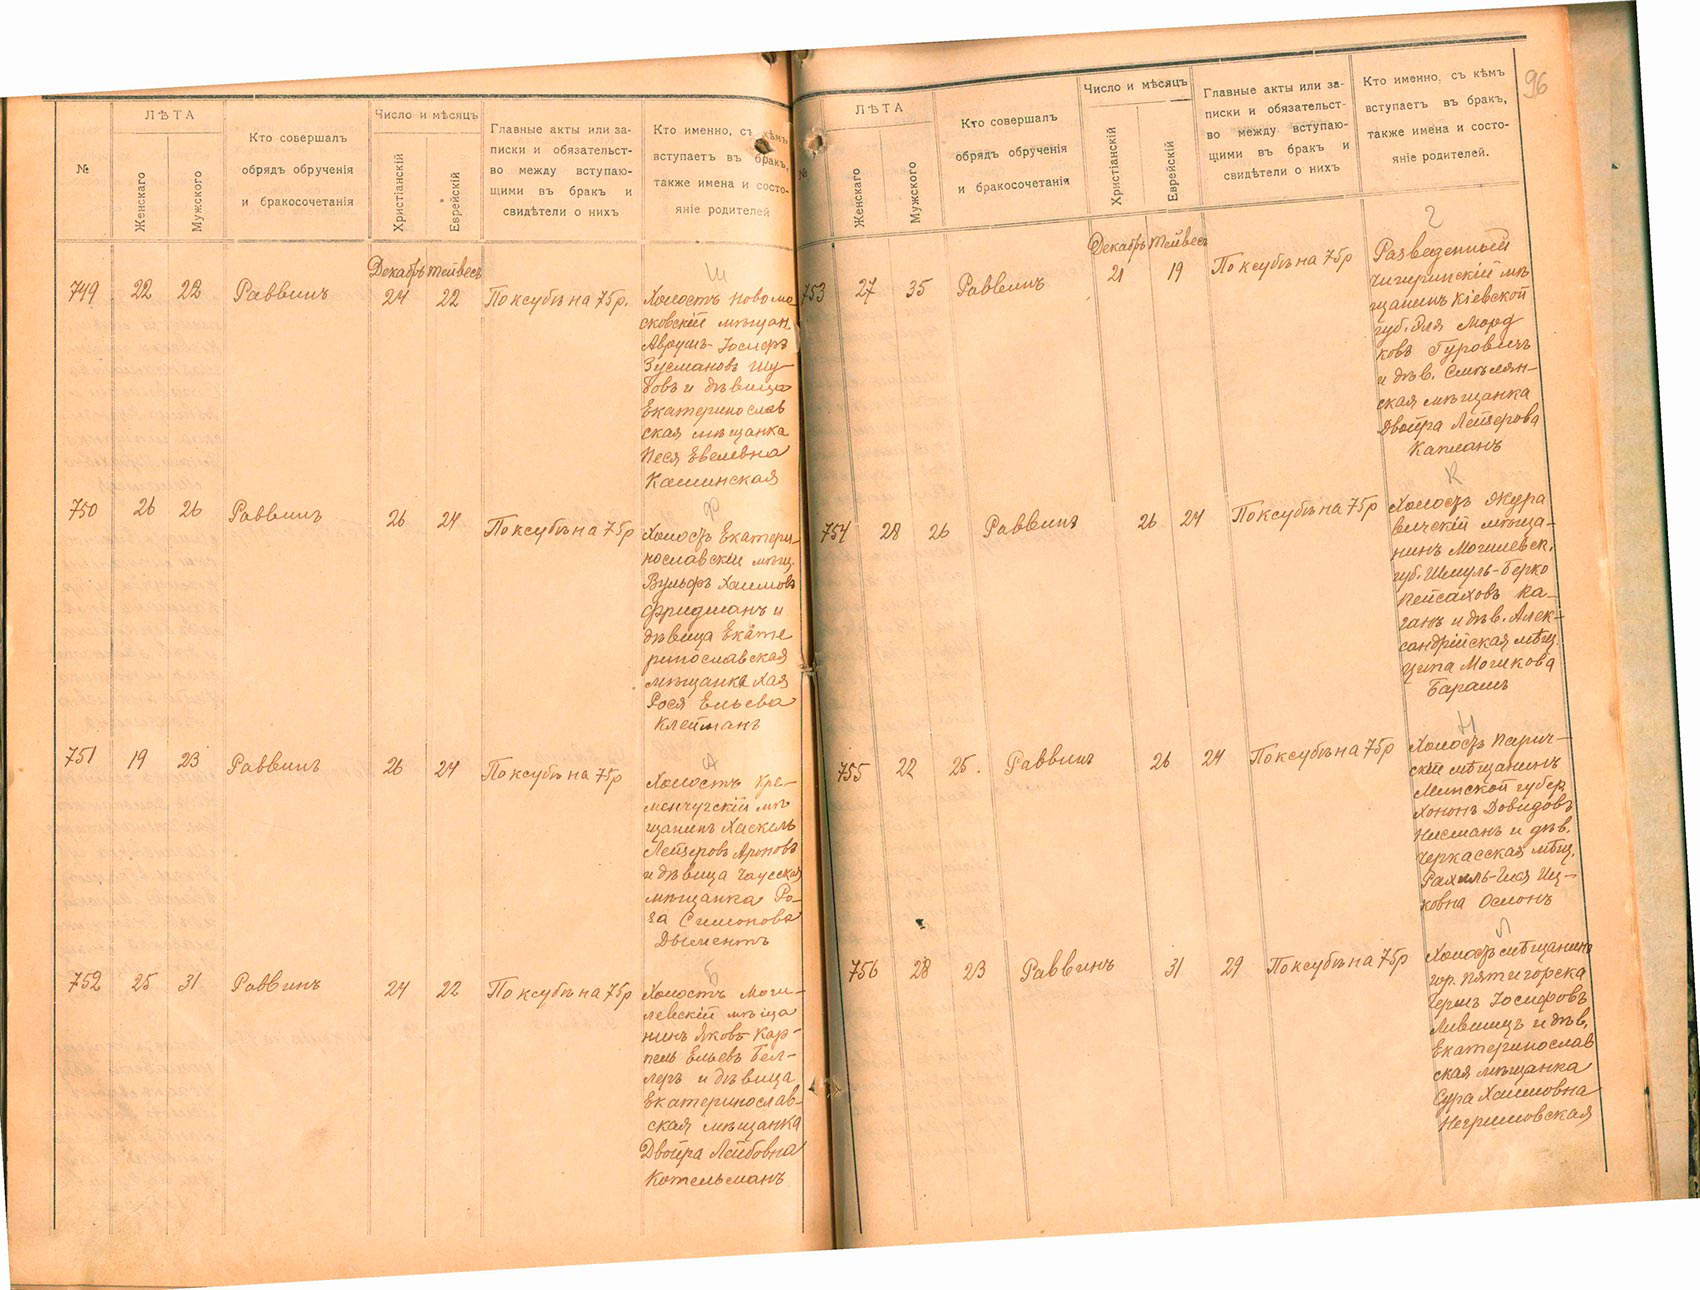 №
ЛѢТА
Женскаго
Мужского
Кто совершалъ
обрядъ обрученія
и бракосочетанія
Число и мѣсяцъ
Христіанскій
Еврейскій
Главные акты или за-
писки и обязательст-
во между вступаю-
щими въ бракъ и
свидѣтели о нихъ
Кто именно, съ кѣмъ
вступаетъ въ бракъ,
также имена и состо-
яніе родителей
Декабрь Тейвесъ
Ш
749 22 22 Раввинъ 24 22 По ксубѣ на 75р.
Холостъ новомо
сковскій мѣщан.
Аврумъ-Іосифъ
Зусмановъ Шу-
бовъ и дѣвица
Екатеринослав
ская мѣщанка
Песя Евелевна
Каминская
Ф
750 26 26 Раввинъ 26 24 По ксубѣ на 75р
Холостъ Екатери-
нославскій мѣщ.
Вульфъ Хаимовъ
Фридманъ и
дѣвица Екате
ринославская
мѣщанка Хая
Рося Ельева
Клейманъ
А
751 19 23 Раввинъ 26 24 По ксубѣ на 75р
Холостъ Кре-
менчугскій мѣ
щанинъ Хаскель
Лейзеровъ Ароновъ
и дѣвица Чаусская
мѣщанка Ро-
за Симонова
Дыментъ
Б
752 25 31 Раввинъ 24 22 По ксубѣ на 75р
Холостъ Моги-
левскій мѣща
нинъ Яковъ-Кар-
пель Ельевъ Бел-
леръ и дѣвица
Екатеринослав-
ская мѣщанка
Двойра Лейбовна
Котельманъ
96
№
ЛѢТА
Женскаго
Мужского
Кто совершалъ
обрядъ обрученія
и бракосочетанія
Число и мѣсяцъ
Христіанскій
Еврейскій
Главные акты или за-
писки и обязательст-
во между вступаю-
щими въ бракъ и
свидѣтели о нихъ
Кто именно, съ кѣмъ
вступаетъ въ бракъ,
также имена и состо-
яніе родителей.
Декабрь Тейвесъ
Г
753 27 35 Раввинъ 21 19 По ксубѣ на 75р
Разведенный
Чигиринскій мѣ
щанинъ Кіевской
губ. Эля Морд
ковъ Гуровичъ
и дѣв. Смѣлян-
ская мѣщанка
Двойра Лейзерова
Капланъ
К
754 28 26 Раввинъ 26 24 По ксубѣ на 75р
Холостъ Журa
вичскій мѣща-
нинъ Могилевск.
губ. Шмуль-Берко
Пейсаховъ Ка-
ганъ и дѣв. Алек-
сандрійская мѣщ.
Ципа Мошкова
Барашъ
Н
755 22 25. Раввинъ 26 24 По ксубѣ на 75р
Холостъ Парич-
скій мѣщанинъ
Минской губер.
Хононъ Довидовъ
Нисманъ и дѣв.
Черкасская мѣщ.
Рахиль-Гися Иц-
ковна Осмонъ
Л
756 28 23 Раввинъ 31 29 По ксубѣ на 75р
Холостъ мѣщанинъ
гор. Пятигорска
Гершъ Іосифовъ
Лившицъ и дѣв.
Екатеринослав
ская мѣщанка
Сура Хаимовна
Негримовская